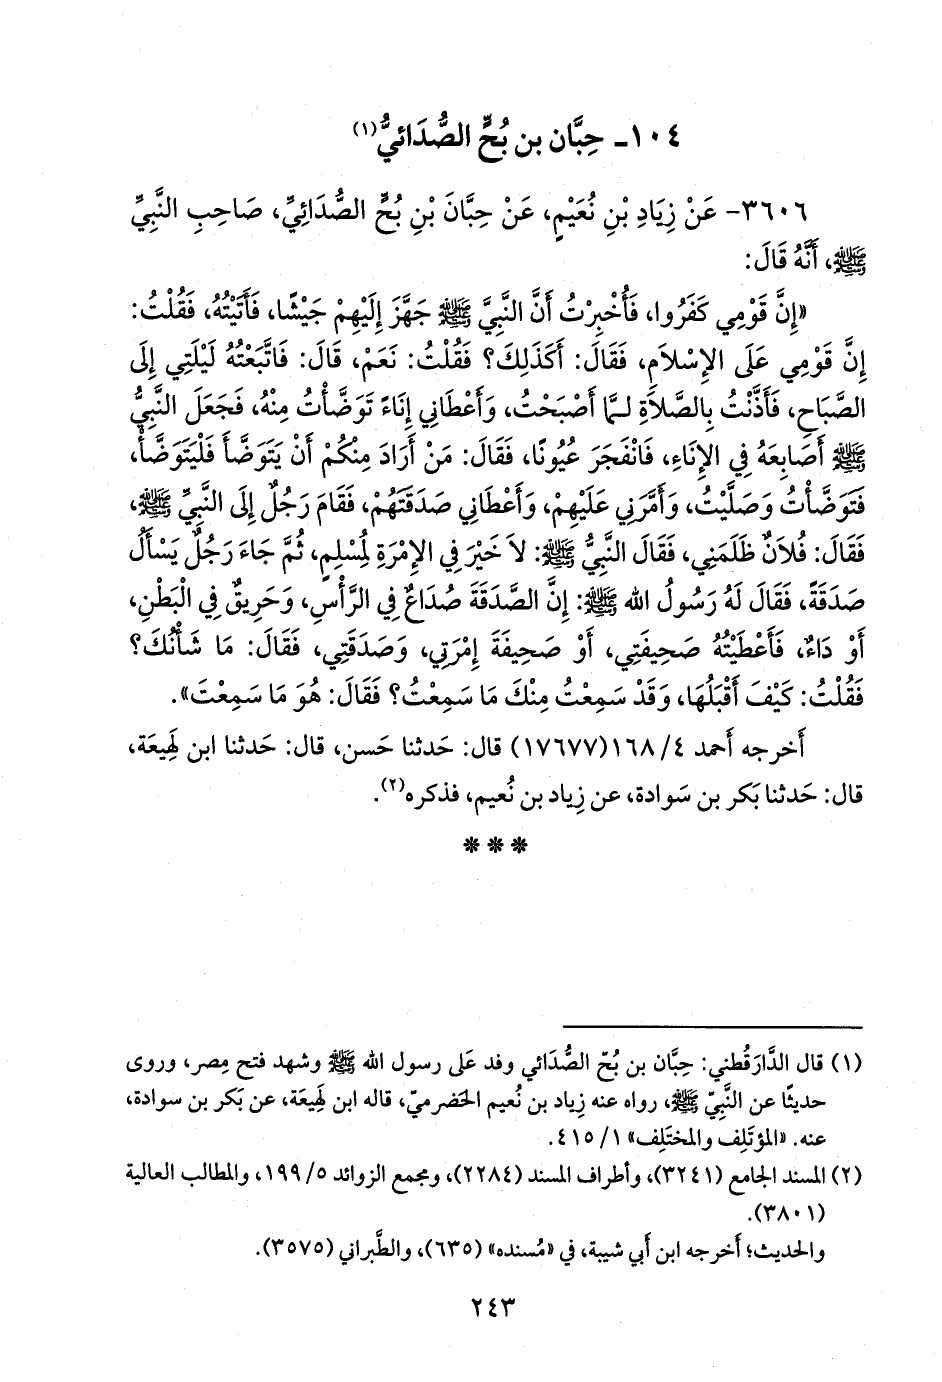 ١٠٤ـ حِبَّان بن بُحٍّ الصُّدَائيُّ(١)
٣٦٠٦- عَنْ زِيَادِ بْنِ نُعَيْمٍ، عَنْ حِبَّانَ بْنِ بُحٍّ الصُّدَائِيِّ، صَاحِبِ النَّبِيِّ
ﷺ، أَنَّهُ قَالَ:
«إِنَّ قَوْمِي كَفَرُوا، فَأُخْبِرْتُ أَنَّ النَّبِيَّ ﷺ جَهَّزَ إِلَيْهِمْ جَيْشًا، فَأَتَيْتُهُ، فَقُلْتُ:
إِنَّ قَوْمِي عَلَى الإِسْلَامِ، فَقَالَ: أَكَذَلِكَ؟ فَقُلْتُ: نَعَمْ، قَالَ: فَاتَّبَعْتُهُ لَيْلَتِي إِلَى
الصَّبَاحِ، فَأَذَّنْتُ بِالصَّلَاةِ لَمَّا أَصْبَحْتُ، وَأَعْطَانِي إِنَاءً تَوَضَّأْتُ مِنْهُ، فَجَعَلَ النَّبِيُّ
ﷺ أَصَابِعَهُ فِي الإِنَاءِ، فَانْفَجَرَ عُيُونًا، فَقَالَ: مَنْ أَرَادَ مِنْكُمْ أَنْ يَتَوَضَّأَ فَلْيَتَوَضَّأْ،
فَتَوَضَّأْتُ وَصَلَّيْتُ، وَأَمَّرَنِي عَلَيْهِمْ، وَأَعْطَانِي صَدَقَتَهُمْ، فَقَامَ رَجُلٌ إِلَى النَّبِيِّ ﷺ،
فَقَالَ: فُلَانٌ ظَلَمَنِي، فَقَالَ النَّبِيُّ ﷺ: لَا خَيْرَ فِي الإِمْرَةِ لِمُسْلِمٍ، ثُمَّ جَاءَ رَجُلٌ يَسْأَلُ
صَدَقَةً، فَقَالَ لَهُ رَسُولُ الله ﷺ: إِنَّ الصَّدَقَةَ صُدَاعٌ فِي الرَّأْسِ، وَحَرِيقٌ فِي الْبَطْنِ،
أَوْ دَاءٌ، فَأَعْطَيْتُهُ صَحِيفَتِي، أَوْ صَحِيفَةَ إِمْرَتِي، وَصَدَقَتِي، فَقَالَ: مَا شَأْنُكَ؟
فَقُلْتُ: كَيْفَ أَقْبَلُهَا، وَقَدْ سَمِعْتُ مِنْكَ مَا سَمِعْتُ؟ فَقَالَ: هُوَ مَا سَمِعْتَ».
أَخرجه أَحمد ٤/ ١٦٨(١٧٦٧٧) قال: حَدثنا حَسن، قال: حَدثنا ابن لَهِيعَة،
قال: حَدثنا بَكر بن سَوادة، عن زِياد بن نُعيم، فذكره(٢).
* * *
(١) قال الدَّارَقُطني: حِبَّان بن بُحّ الصُّدَائي وفد عَلى رسول الله ﷺ وشهد فتح مِصر، وروى
حديثًا عن النَّبيّ ﷺ، رواه عنه زِياد بن نُعيم الحَضرميّ، قاله ابن لَهِيعَة، عن بَكر بن سوادة،
عنه. «المؤتَلِف والمختَلِف» ١/ ٤١٥.
(٢) المسند الجامع (٣٢٤١)، وأطراف المسند (٢٢٨٤)، ومجمع الزوائد ٥/ ١٩٩، والمطالب العالية
(٣٨٠١).
والحديث؛ أَخرجه ابن أَبي شيبة، في «مُسنده» (٦٣٥)، والطَّبراني (٣٥٧٥).
٢٤٣